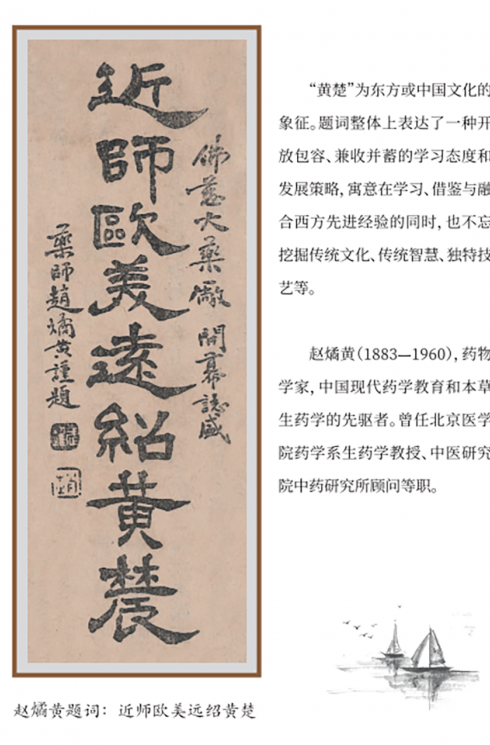 佛慈大藥廠開幕誌盛
近師歐美遠紹黃辳
藥師趙燏黃謹題
“黄楚”为东方或中国文化的
象征。题词整体上表达了一种开
放包容、兼收并蓄的学习态度和
发展策略，寓意在学习、借鉴与融
合西方先进经验的同时，也不忘
挖掘传统文化、传统智慧、独特技
艺等。
赵燏黄（1883—1960），药物
学家，中国现代药学教育和本草
生药学的先驱者。曾任北京医学
院药学系生药学教授、中医研究
院中药研究所顾问等职。
赵燏黄题词：近师欧美远绍黄楚